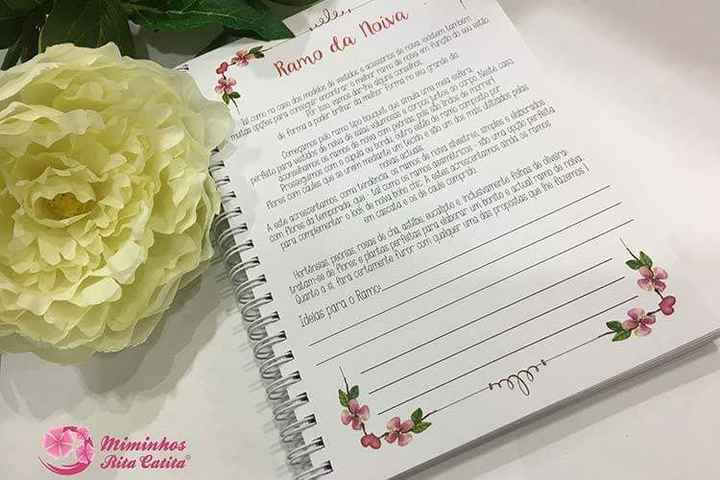 Ramo da Noiva
Tal como no caso dos modelos de vestidos e acessórios de noiva, existem também
muitas opções para conseguir encontrar o melhor ramo de noiva em função do seu estilo.
Por isso, vamos dar-lhe alguns conselhos
de forma a poder brilhar da melhor forma no seu grande dia.
Começamos pelo ramo tipo bouquet, que simula uma meia esfera,
perfeito para vestidos de noiva de saias volumosas e corpos justos ao corpo. Neste caso
aconselhamos os ramos de noiva pelas tão lindas de marmer!
Prosseguimos com o cúpula ou bonda, outro estilo de ramo composto por
flores com caules que se unem mediante um tecido e são um dos mais utilizados pelas
noivas actuais.
A este acrescentamos, como tendência, os ramos de noiva silvestre, simples e elaborados
com flores da temporada, que - tal como os ramos assimétricos - são uma opção perfeita
para complementar o look de noiva boho chic. A este acrescentamos ainda os ramos
em cascata e os de caule comprido.
Hortênsias, peonias, rosas de chá, astilbe, eucalipto e, inclusivamente, folhas de oliveira:
tratam-se de flores e plantas perfeitas para elaborar um bonito e actual ramo de noiva.
Quanto a si, fará certamente furor com qualquer uma das propostas que lhe fazemos!
Ideias para o Ramo:
Miminhos
Rita Catita